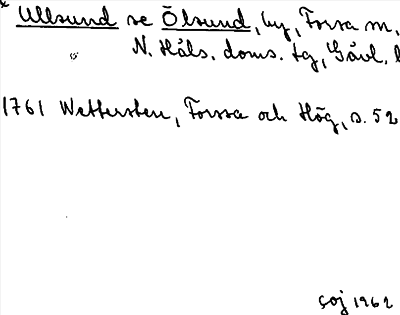 Ullsund se Ölsund, by, Forsa sn.
N. Häls. doms. tg, Gävl. l
1761 Wettersten, Forssa och Hög, s. 52
Soj 1962